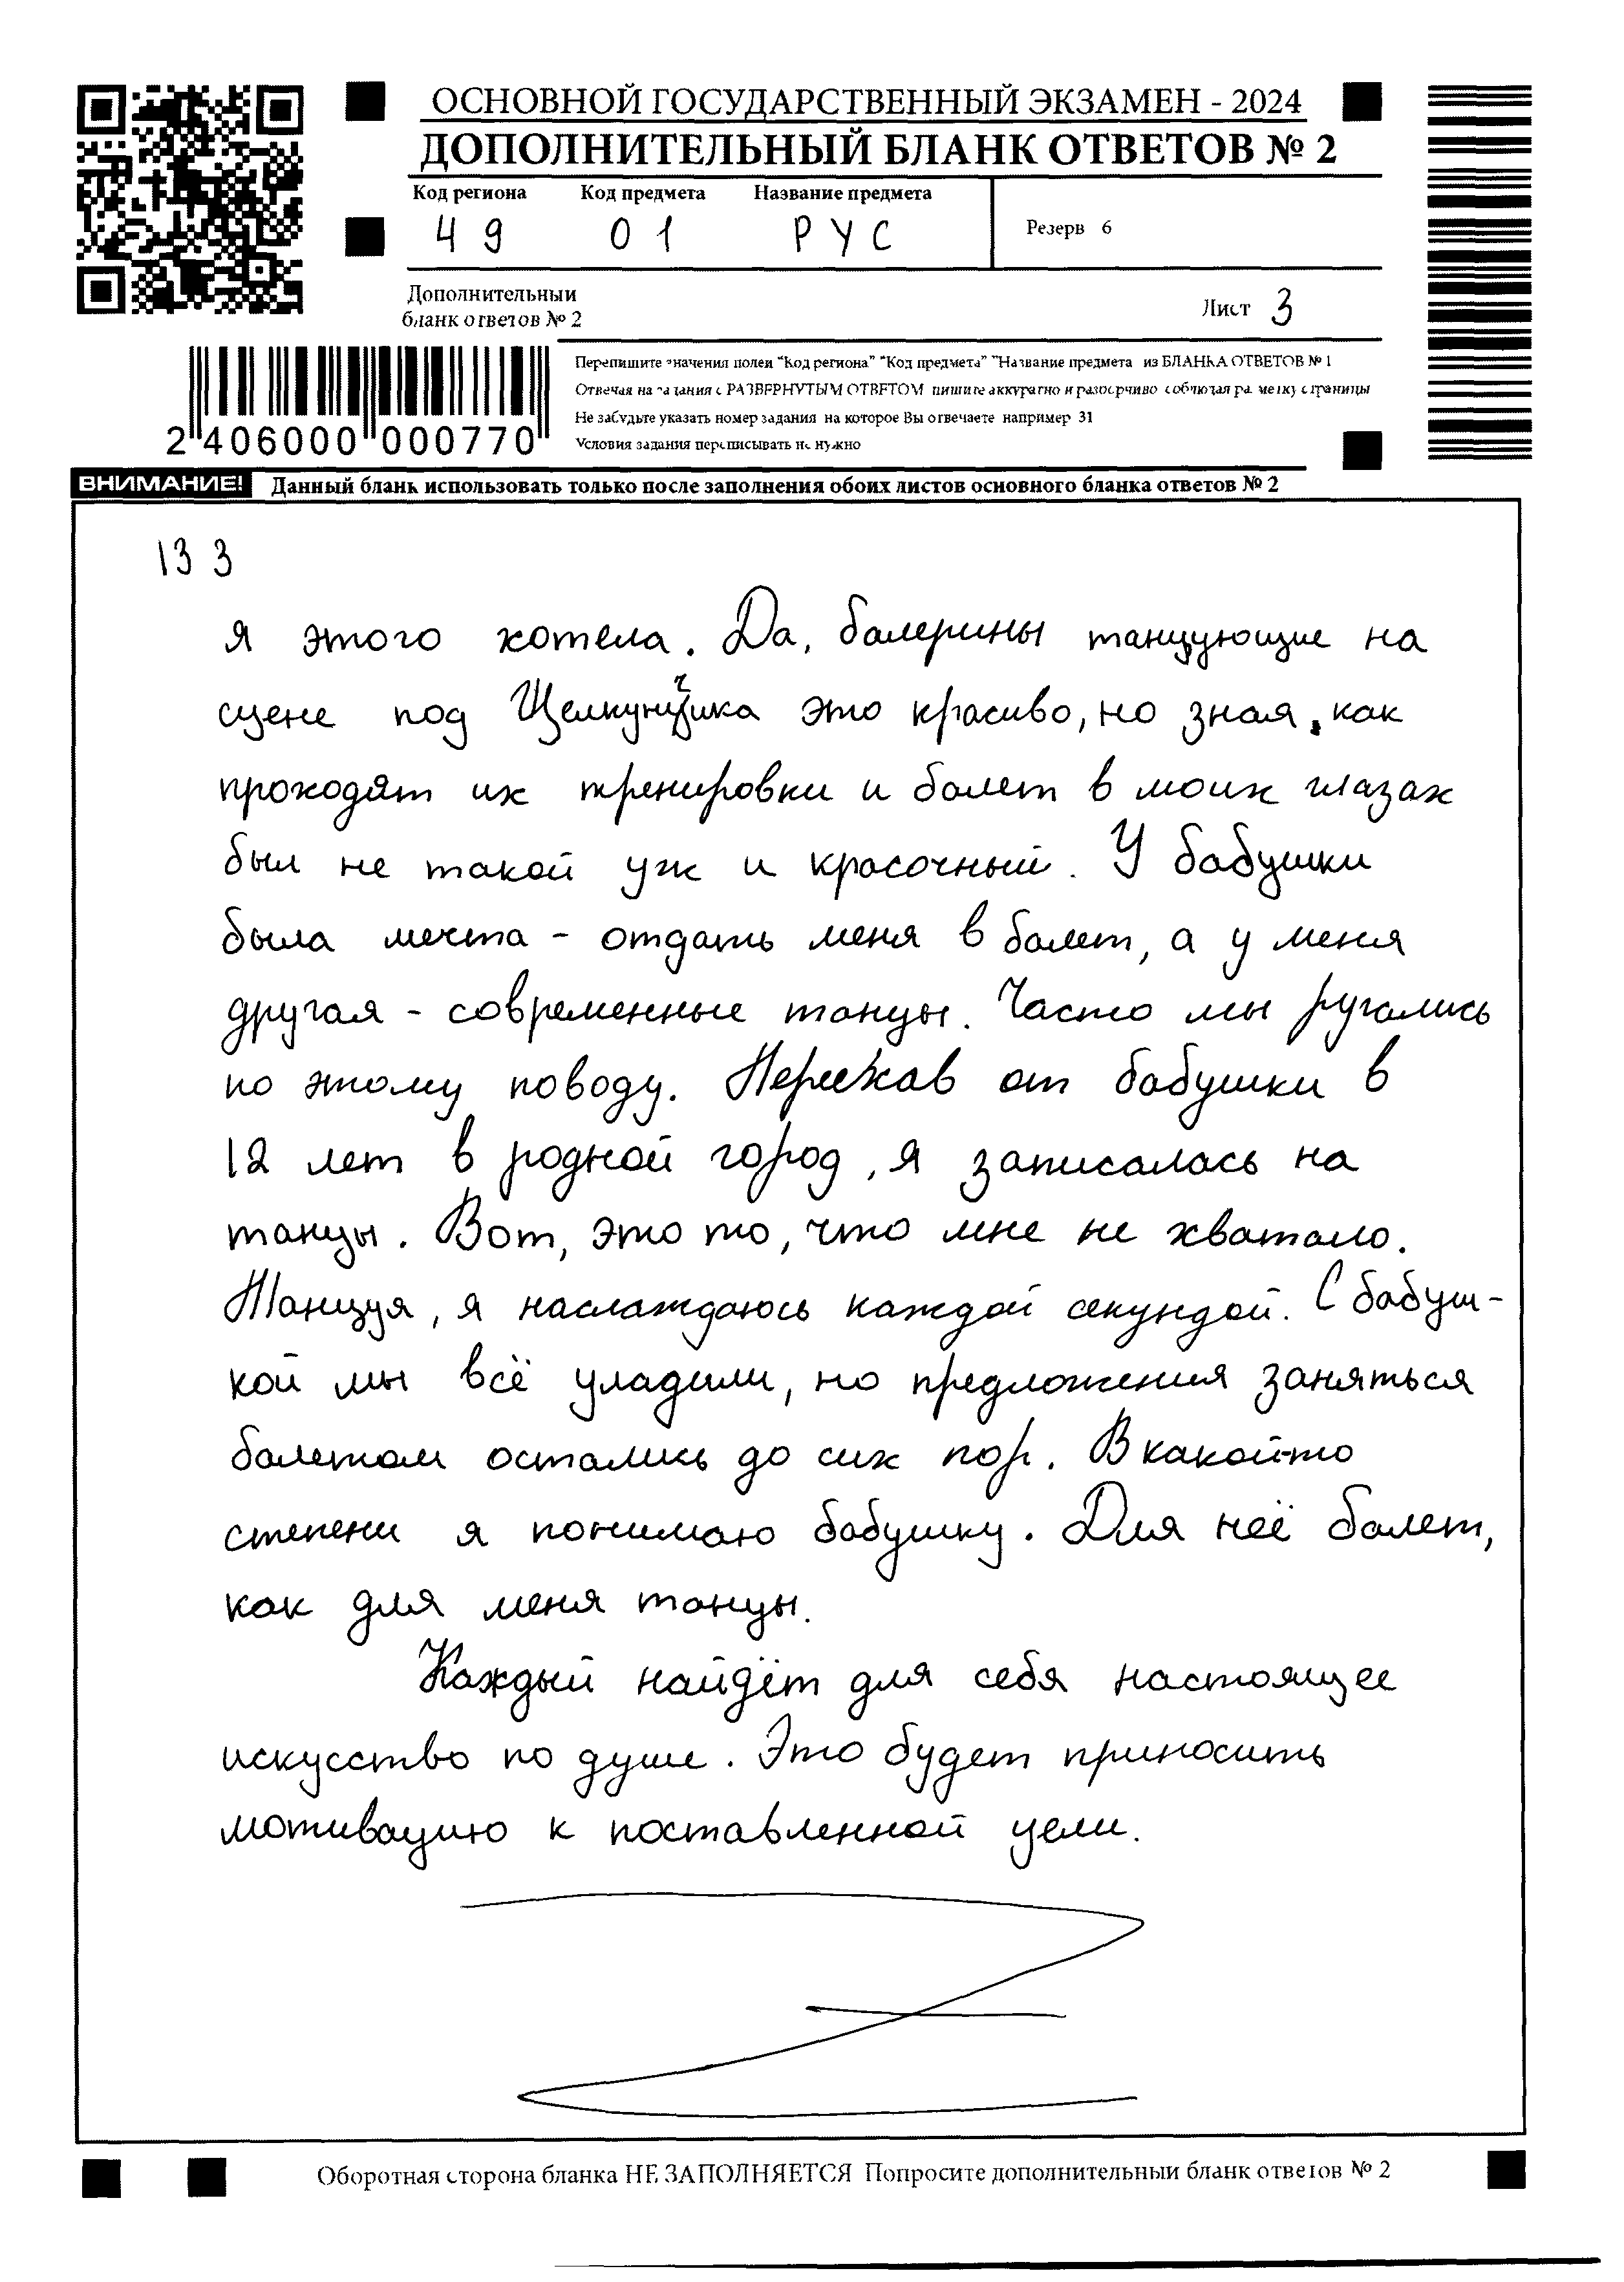 ОСНОВНОЙ ГОСУДАРСТВЕННЫЙ ЭКЗАМЕН - 2024
ДОПОЛНИТЕЛЬНЫЙ БЛАНК ОТВЕТОВ № 2
Код региона Код предмета Название предмета
49 01 РУС
Резерв 6
Дополнительный
бланк ответов № 2
Лист 3
Перепишите значения полей "Код региона" "Код предмета" "Название предмета из БЛАНКА ОТВЕТОВ № 1
Отвечая на задания с РАЗВЕРНУТЫМ ОТВЕТОМ пишите аккуратно и разборчиво соблюдая разметку страницы
Не забудьте указать номер задания на которое Вы отвечаете например 31
Условия задания переписывать не нужно
2 406000 000770
ВНИМАНИЕ! Данный бланк использовать только после заполнения обоих листов основного бланка ответов № 2
13 3
я этого хотела. Да, балерины танцующие на
сцене под Щелкунчика это красиво, но зная, как
проходят их тренировки и балет в моих глазах
был не такой уж и красочный. У бабушки
была мечта - отдать меня в балет, а у меня
другая - современные танцы. Часто мы ругались
по этому поводу. Переехав от бабушки в
12 лет в родной город, я записалась на
танцы. Вот, это то, что мне не хватало.
Танцуя, я наслаждаюсь каждой секундой. С бабуш-
кой мы всё уладили, но предложения заняться
балетом остались до сих пор. В какой-то
степени я понимаю бабушку. Для неё балет,
как для меня танцы.
Каждый найдёт для себя настоящее
искусство по душе. Это будет приносить
мотивацию к поставленной цели.
Оборотная сторона бланка НЕ ЗАПОЛНЯЕТСЯ Попросите дополнительный бланк ответов № 2